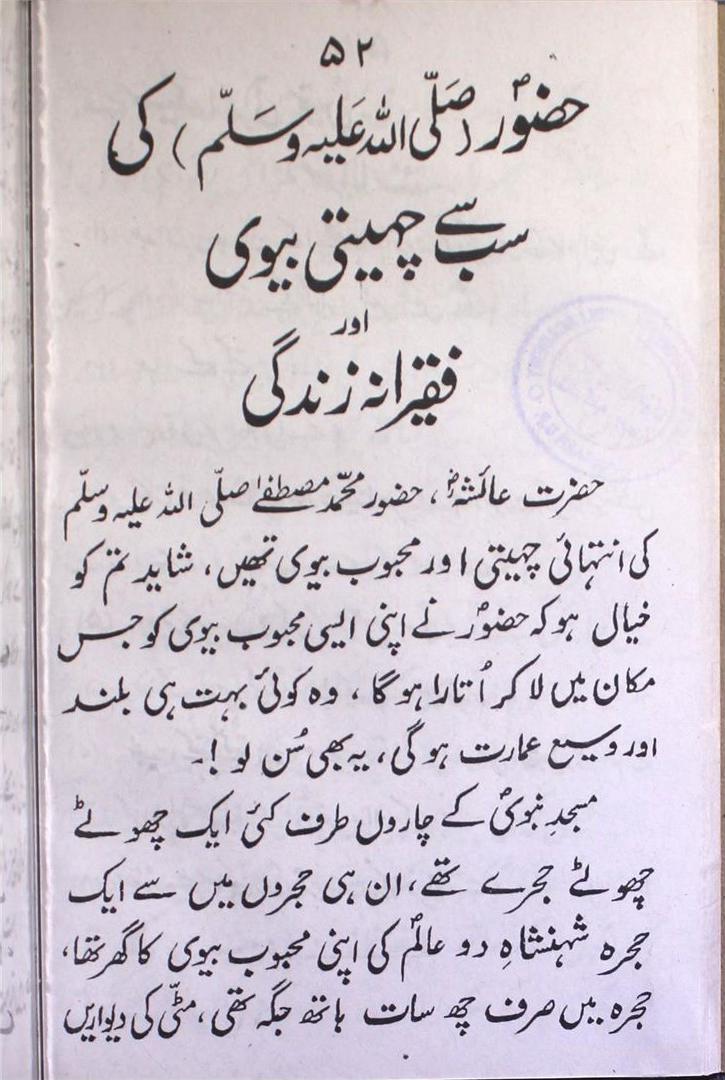 ۵۲
حضورؐ (صَلَّی اللہ عَلیہ وسَلّم) کی
سب سے چہیتی بیوی
اور
فقیرانہ زندگی
حضرت عائشہؓ، حضور محمّد مصطفےٰ صلّی اللہ علیہ وسلّم
کی انتہائی چہیتی اور محبوب بیوی تھیں، شاید تم کو
خیال ہو کہ حضورؐ نے اپنی ایسی محبوب بیوی کو جس
مکان میں لا کر اُتارا ہوگا، وہ کوئی بہت ہی بلند
اور وسیع عمارت ہوگی، یہ بھی سُن لو !۔
مسجدِ نبویؐ کے چاروں طرف کئی ایک چھوٹے
چھوٹے حجرے تھے، ان ہی حجروں میں سے ایک
حجرہ شہنشاہِ دو عالمؐ کی اپنی محبوب بیوی کا گھر تھا،
حجرہ میں صرف چھ سات ہاتھ جگہ تھی، مٹّی کی دیواریں